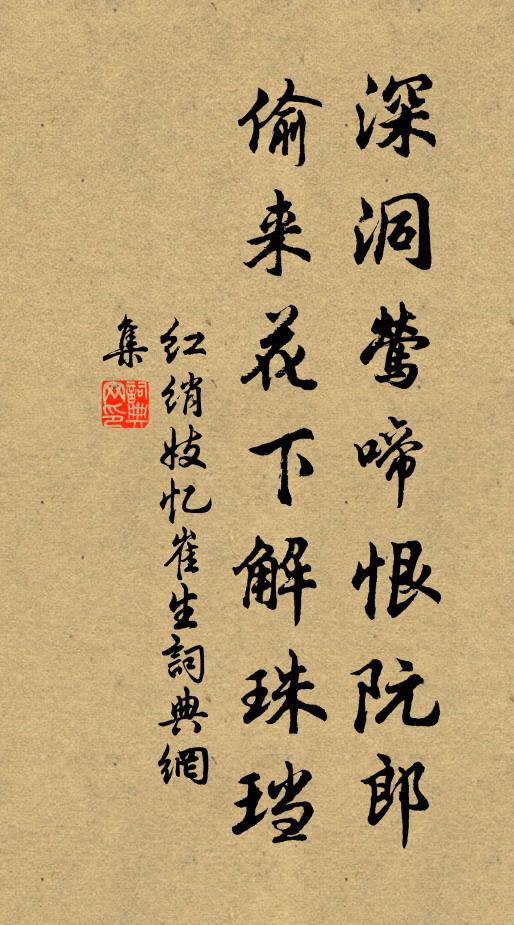 深洞莺啼恨阮郎
偷来花下解珠珰
红绡妓忆崔生詞典網
集
詞典
网印